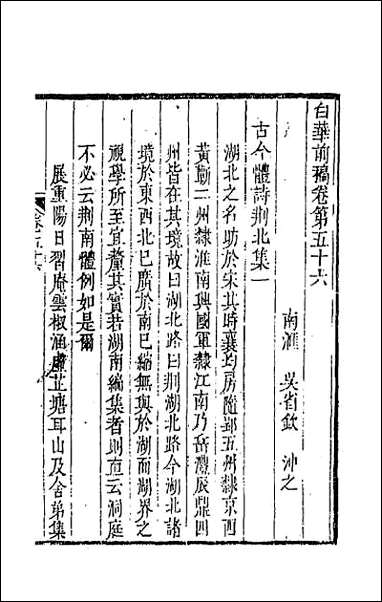 白華前稿卷第五十六
南滙 吳省欽 冲之
古今體詩荆北集一
湖北之名昉於宋其時襄均房隨郢五州隸京西
黃蘄二州隸淮南興國軍隸江南乃岳灃辰鼎四
州皆在其境故曰湖北路曰荆湖北路今湖北諸
境於東西北已廣於南已縮無與於湖而湖界之
視學所至宜釐其實若湖南編集者則直云洞庭
不必云荆南體例如是爾
展重陽日習庵雲椒涵虛芷塘耳山及舍弟集
卷五十六